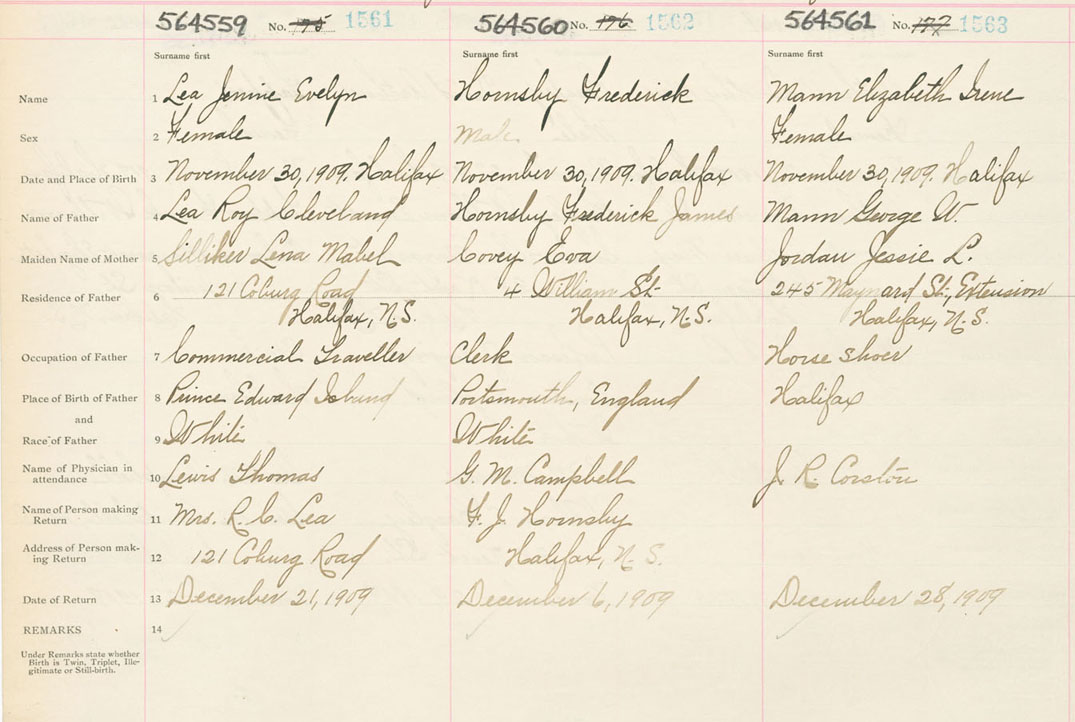 564559 No. 175 1561 564560 No. 176 1562 564561 No. 177 1563
Surname first Surname first Surname first
Name 1 Lea Jennie Evelyn Hornsby Frederick Mann Elizabeth Irene
Sex 2 Female Male Female
Date and Place of Birth 3 November 30, 1909. Halifax November 30, 1909. Halifax November 30, 1909. Halifax
Name of Father 4 Lea Roy Cleveland Hornsby Frederick James Mann George W.
Maiden Name of Mother 5 Silliker Lena Mabel Covey Eva Jordan Jessie L.
Residence of Father 6 121 Coburg Road 4 William St. 245 Maynard St., Extension
Halifax, N.S. Halifax, N.S. Halifax, N.S.
Occupation of Father 7 Commercial Traveller Clerk Horse Shoer
Place of Birth of Father 8 Prince Edward Island Portsmouth, England Halifax
and
Race of Father 9 White White
Name of Physician in
attendance 10 Lewis Thomas G. M. Campbell J. R. Corston
Name of Person making
Return 11 Mrs. R. C. Lea F. J. Hornsby
Address of Person mak-
ing Return 12 121 Coburg Road Halifax, N.S.
Date of Return 13 December 21, 1909 December 6, 1909 December 28, 1909
REMARKS 14
Under Remarks state whether
Birth is Twin, Triplet, Ille-
gitimate or Still-birth.